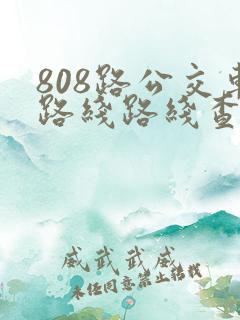 808路公交车
路线路线查
威武武威
未经同意禁止转载